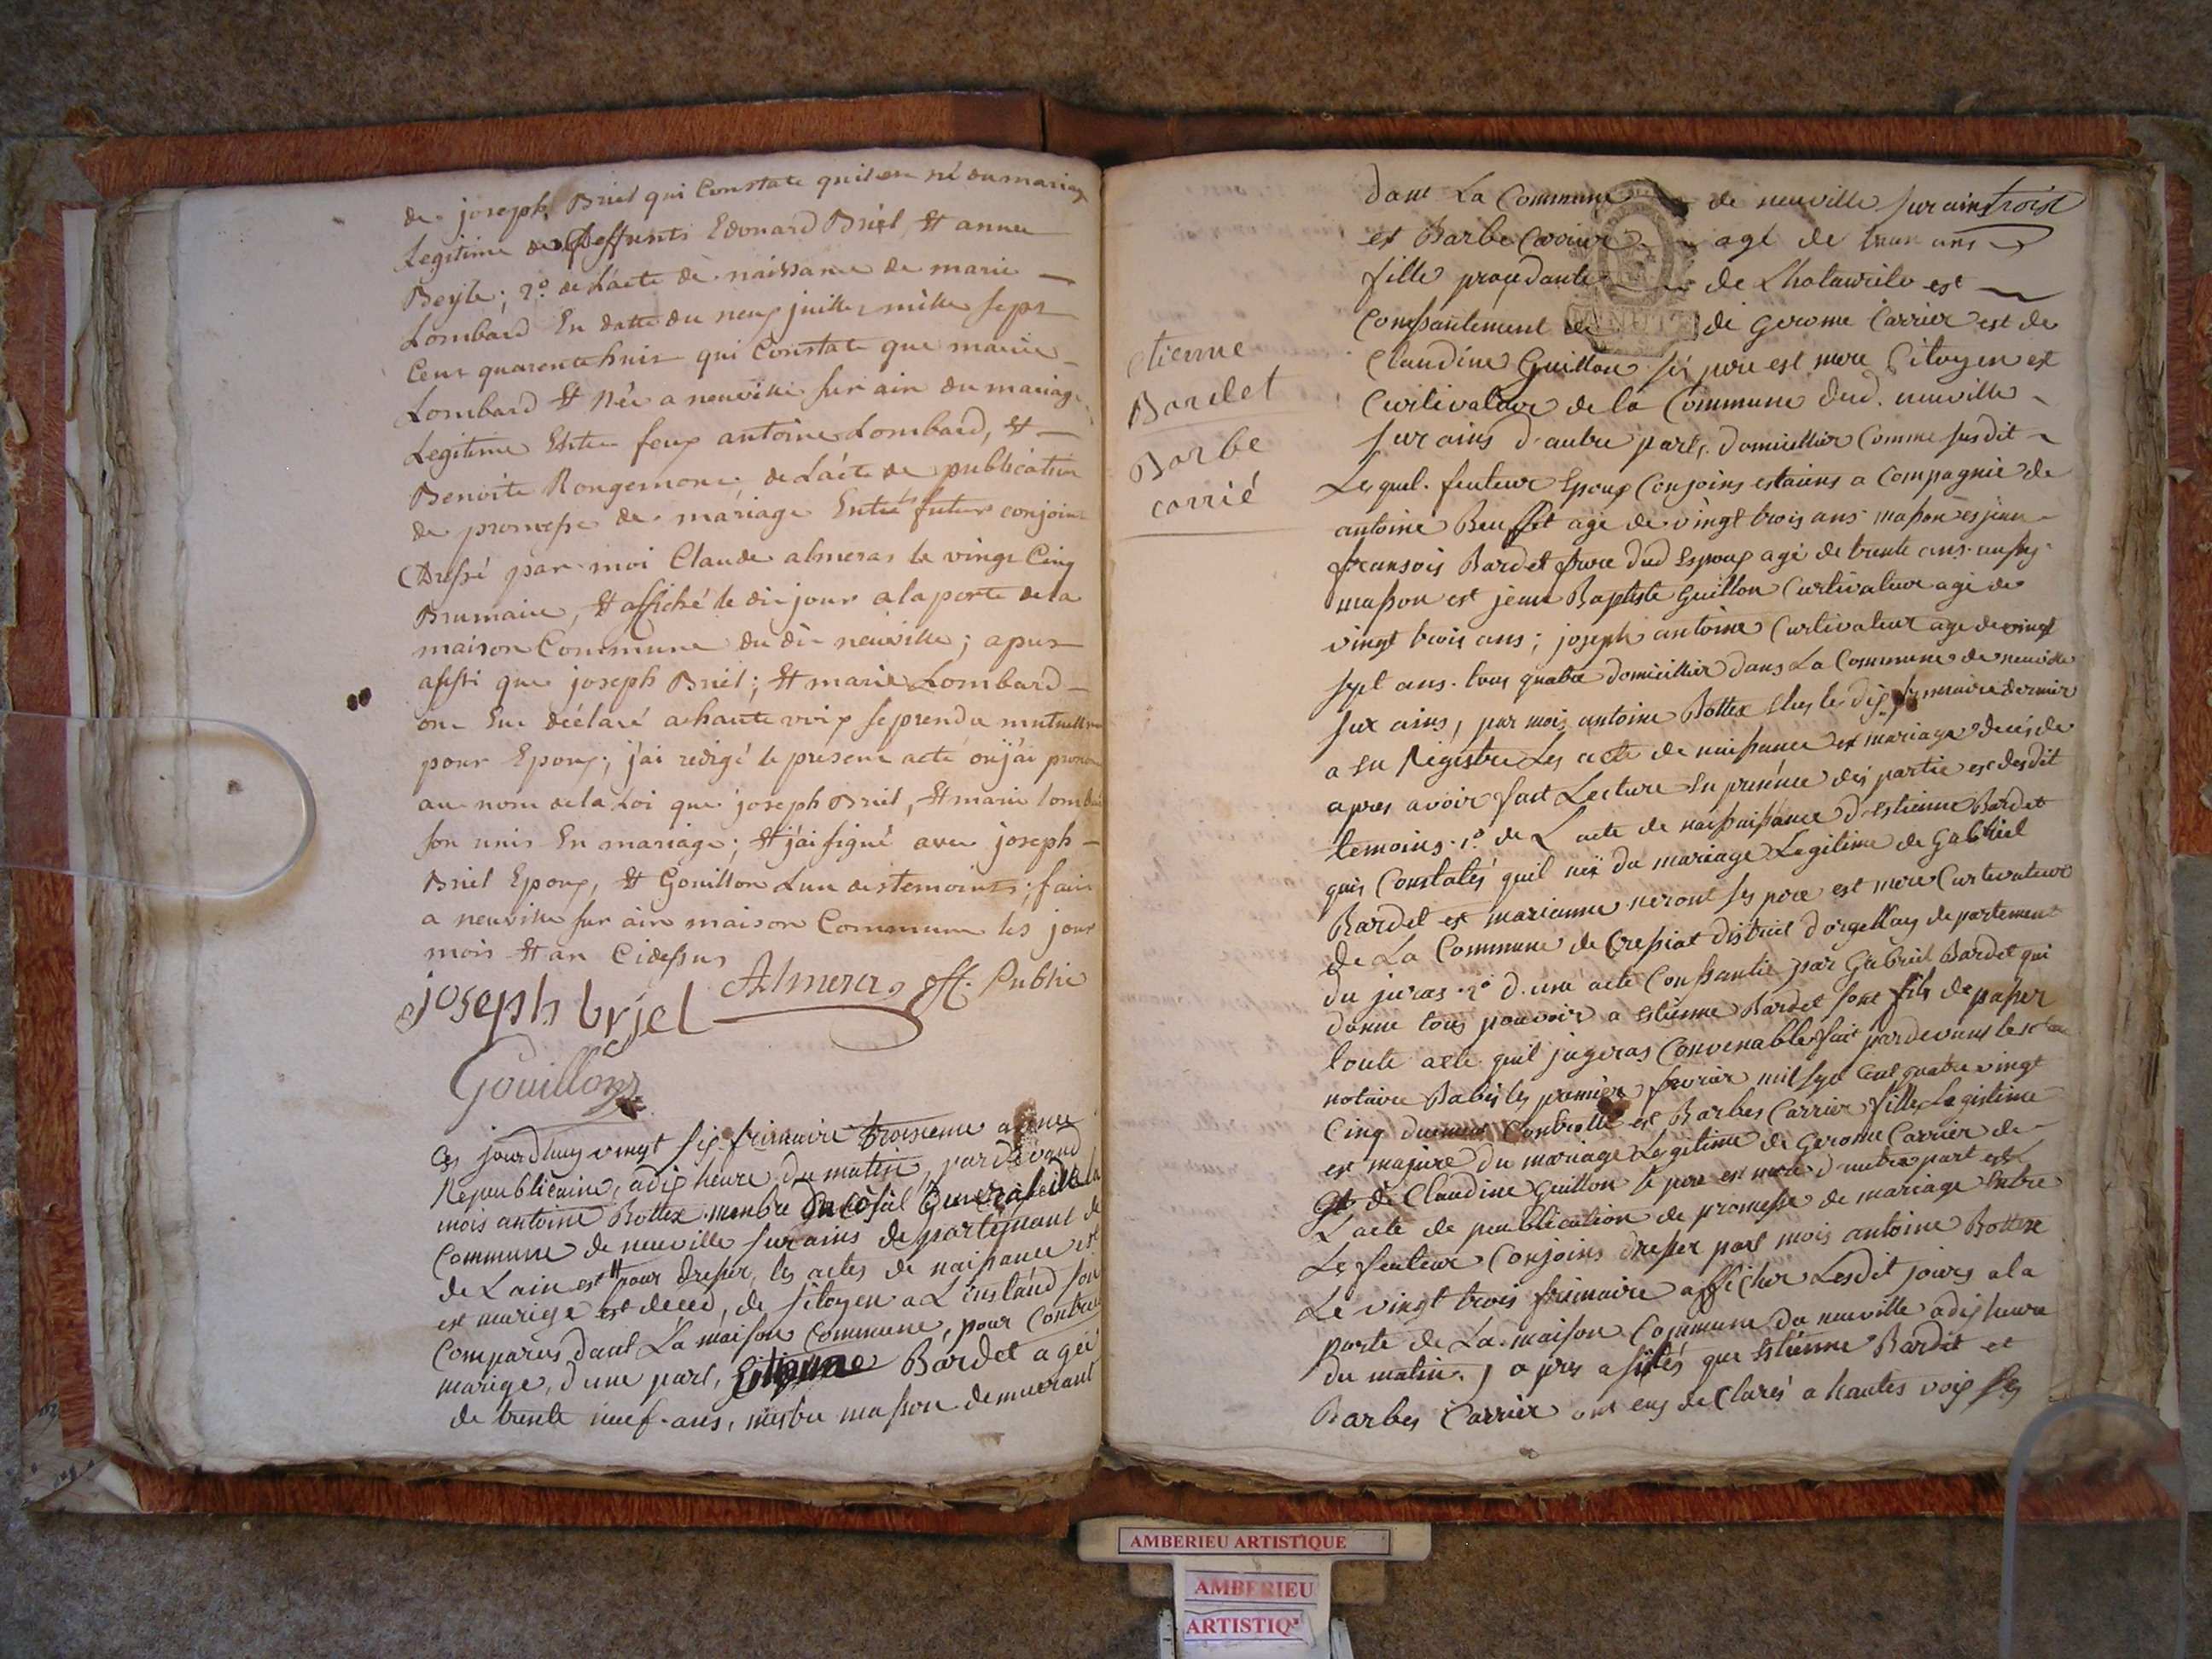 de joseph Briel qui Constate quil est né du mariage
Legitime de deffunts Edouard Briel, Et anne
Beyle; 2º. de L'acte de naissance de marie
Lombard En datte du neuf juillet mille sept
Cent quarente huit qui Constate que marie
Lombard Et Née a neuville sur ain du mariage
Legitime Entre feux antoine Lombard, Et
Benoite Rongemont. de L'acte de publication
de promesse de mariage Entre futur conjoint
Dressé par moi Claude almeras le vingt Cinq
Brumaire, Et affiché le dit jour a la porte de la
maison Commune du dit neuville; apres
assi que joseph Briel; Et marie Lombard
ont Eue déclaré a haute voix se prendre mutuellement
pour Epoux; j'ai redigé le presene acte ou j'ai
au nom de la Loi que joseph Briel, Et marie
son unis En mariage; Et j'ai signé avec joseph
Briel Epoux, Et Gouillon L'un des temoints; fait
a neuville sur ain maison Commune les jour
mois Et an Cidessus
joseph brjel Almeras off. Public
Gouillon
Ces jourdhuy vingt six frimaire troisieme annee
Republicaine, a dix heure du matin, par devand
mois antoine Bottex menbre du cosul General de la
Commune de neuville sur ains de partemant de
de Lain est pour dresser, les actes de naisance est
est marige est deced, de sitoyen a L'instand son
Comparus dant La maison Commune, pour Contrae
marige, d'une part, Bardet agée
de trente neuf ans, maitre masson demeurant
etienne
Bardet
Barbe
carrié
dant La Commune de neuville sur ains troisi
et Barbe Carrier age de trente ans
fille prosedante de est
Consantement de de Gerome Carrier est de
Claudine Guillon ses pere est mere Sitoyen est
Curlivateur de la Commune dud. neuville
sur ains d'autre parts. domicillier Comme susdit
Lesquel. feuteur Epoux Conjoins estaiens a Compagnié de
antoine agé de vingt trois ans masson es jean
fransois Bardet frere dud Espoux agé de trente ans. aussy
masson est jean Baptiste Guillon Curtivateur agé de
vingt trois ans; joseph antoine Curtivateur age de vingt
sept ans. tous quatre domicillier dans La Commune de neuville
sur ains, par mois antoine Bottex dernier
a En Régistre Les acte de naissance et mariage deces de
apres avoir fait Lecture En presence des partie est desdit
temoins. 1º. de L'acte de d'Estienne Bardet
quis Constatés quil néé du mariage Legitime de Gabriel
Bardet est marianne neront ses pere est mere Curtivateur
de La Commune de Cressiat distriel d'orgellay departement
du juras. 2º d'une acte Consantie par Gabriel Bardet qui
donne tous pouvoir a Estienne Bardet sont fils de passer
toute acte quil jugeras Convenable fait par devant
notaire Babis les premier fevrier mil sept Cent quatre vingt
Cinq duement Controllé est Barbes Carrier fille Legistime
est majure du mariage Legitime de Gerome Carrier de
Claudine Guillon le pere est mere d'autre part est
L'acte de peublication de promesse de mariage Entre
Les feuteur Conjoins dresser part mois antoine Bottex
Le vingt trois frimaire afficher Lesdit jours a la
porte de La maison Commune du neuville a dix heure
du matin, apres que Estienne Bardet et
Barbes Carrier ont eus de Clarés a hautes voix
AMBERIEU ARTISTIQUE
AMBERIEU
ARTISTIQ